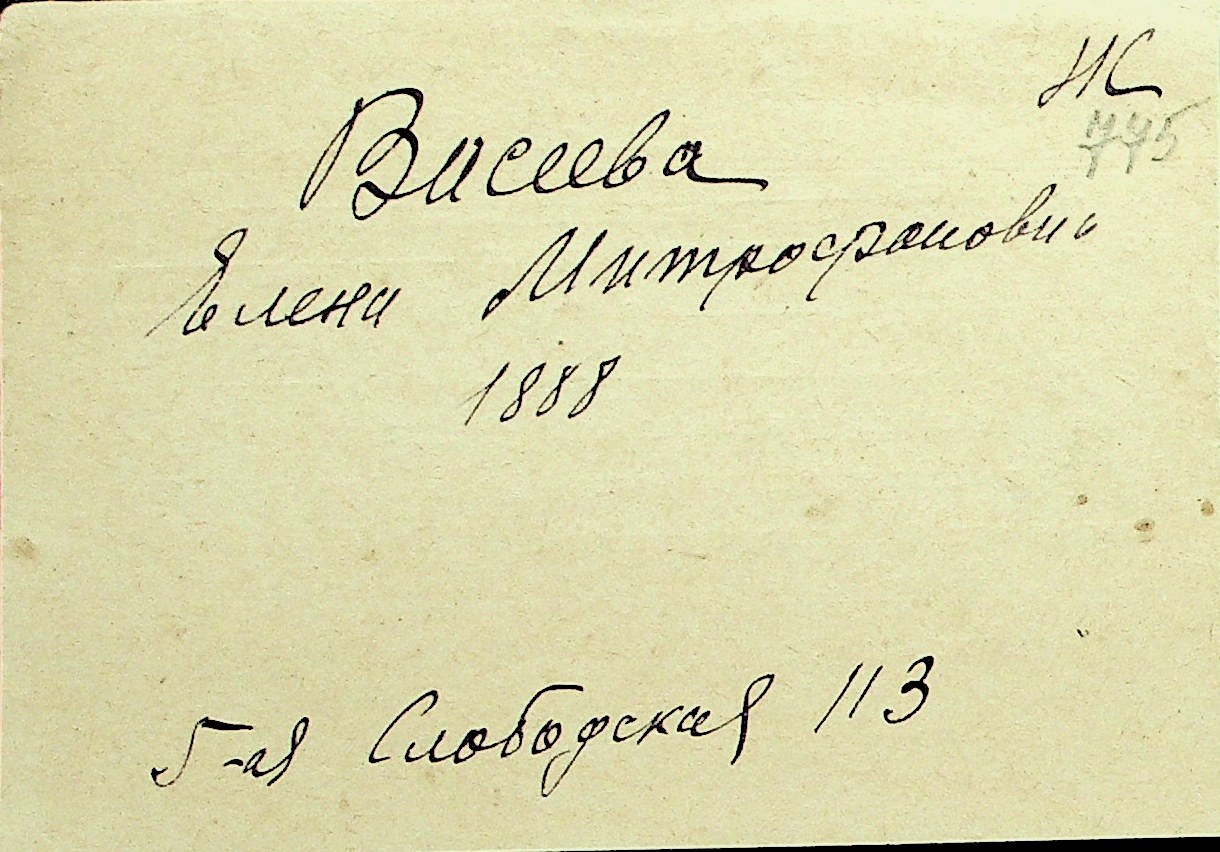 НС
775
Висеева
Елена Митрофановна
1888
5-ая Слободская 113